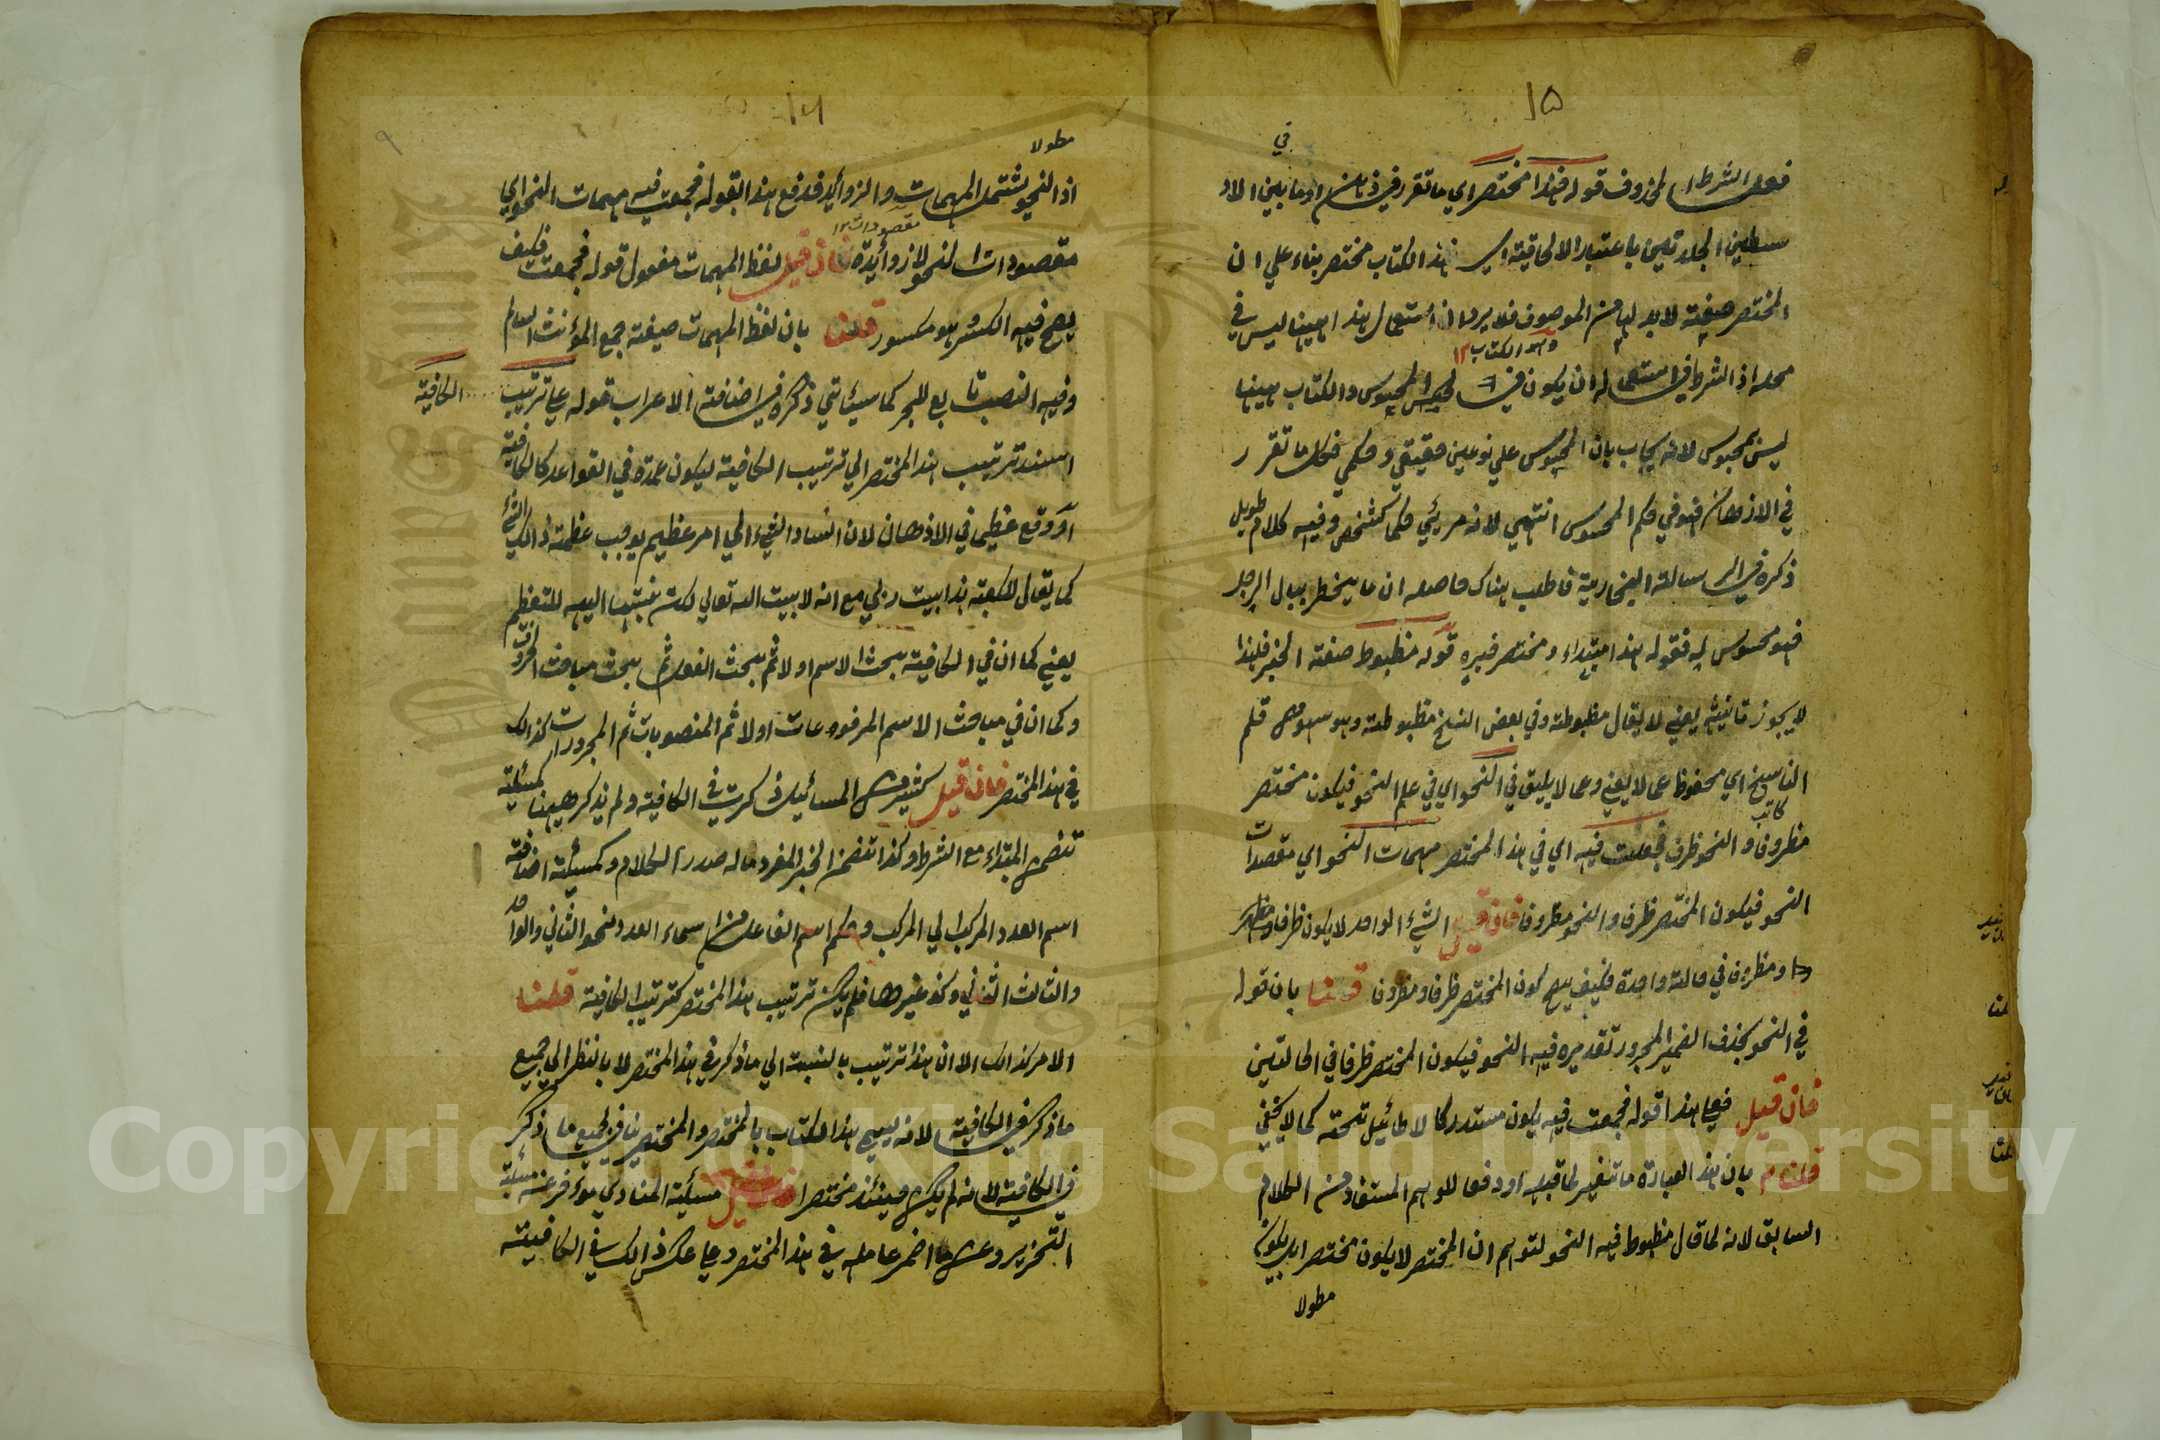 ١٥
في
فعل الشرط المحذوف قوله فهذا مختصر اي ما تقرر في ذهن او ما بين الاو
الجلدتين باعتبار الالحاقية اي هذا الكتاب مختصر بناء علي ان
المختصر صيغة لابد لها من الموصوف فلا يرد ان استعمال هذا ههنا ليس في
وهو الكتاب ١٢
محله اذ الشرط في استعماله ان يكون في المحسوس والكتاب ههنا
ليس بمحسوس لانه يجاب بان المحسوس علي نوعين حقيقي وحكمي فكل ما تقرر
في الاذهان فهو في حكم المحسوس انتهي لانه مرئي حكما كشخص وفيه كلام طويل
ذكره في الرسالة الفخارية فاطلب هناك حاصله ان ما يخطر ببال الرجل
فهو محسوس له فقوله هذا مبتداء ومختصر خبره قوله مظبوط صفة الخبر فلهذا
لا يجوز تانيثه يعني لا يقال مظبوطة وفي بعض النسخ مظبوطة وهو سهو من قلم
الناسخ اي محفوظ عما لا يعني وعما لا يليق في النحو اي في علم النحو فيكون مختصر
كاتب
مظروف والنحو ظرف فجعلت فيه اي في هذا المختصر مهمات النحو اي مقصدات
النحو فيكون المختصر ظرفا والنحو مظروفا فان قيل الشيء الواحد لا يكون ظرفا
ومظروف في حالة واحدة فكيف يصح كون المختصر ظرفا ومظروف قلنا بان قوله
في النحو بحذف الضمير المجرور تقديره فيه النحو فيكون المختصر ظرفا في الحالتين
فان قيل فعلي هذا قوله فجمعت فيه يكون مستدركا لا طائل تحته كما لا يخفي
قلنا بان هذا العبارة ما تغير لما قبله او دفعا للوهم المستفاد من الكلام
السابق لانه لما قال مظبوط فيه النحو لتوهم ان المختصر لا يكون مختصرا بل يكون
مطولا
١٦
مطولا
اذ النحو يشتمل المهمات والزوائد فدفع هذا بقوله فجمعت فيه مهمات النحو اي
مقصودات ١٢
مقصودات النحو لا زوائده فان قيل لفظ المهمات مفعول قوله فجمعت فكيف
يصح فيه الكسر وهو مكسور قلنا بان لفظ المهمات صيغة جمع المؤنث السالم
وفيه النصب تابع للجر كما سيأتي ذكره في اضافة الاعراب قوله علي ترتيب الكافية
اسند ترتيب هذا المختصر الي ترتيب الكافية ليكون عمدة في القواعد كالكافية
او وقع عظيم في الاذهان لان اسناد الشيء الي امر عظيم يوجب عظمة ذالك الشيء
كما يقال للكعبة هذا بيت ربي مع انه لا بيت الله تعالي لكن نسبتها اليه للتعظيم
يعني كما ان في الكافية بحث الاسم اولا ثم بحث الفعل ثم بحث مباحث الحروف
وكما ان في مباحث الاسم المرفوعات اولا ثم المنصوبات ثم المجرورات كذالك
في هذا المختصر فان قيل كثير من المسائل ذكرت في الكافية ولم يذكر ههنا كمسئلة
تضمن المبتداء مع الشرط وكذا تضمن الخبر المفرد ما له صدر الكلام وكمسئلة اضافة
اسم العدد المركب الي المركب وحكم اسم الفاعل من اسماء العدد ونحو الثاني والواحد
والثالث الثاني ونحو غيرها فلم يكن ترتيب هذا المختصر كترتيب الكافية قلنا
الامر كذالك الا ان هذا ترتيب بالنسبة الي ما ذكر في هذا المختصر لا بالنظر الي جميع
ما ذكر في الكافية لانه يسمي هذا الكتاب بالمختصر والمختصر ينافي لجميع ما ذكر
في الكافية لانه لم يكن حينئذ مختصرا فان قيل مسئلة المنادي مؤخر عن مسئلة
التحزير وعن ما اضمر عامله في هذا المختصر وعلي عكس ذالك في الكافية